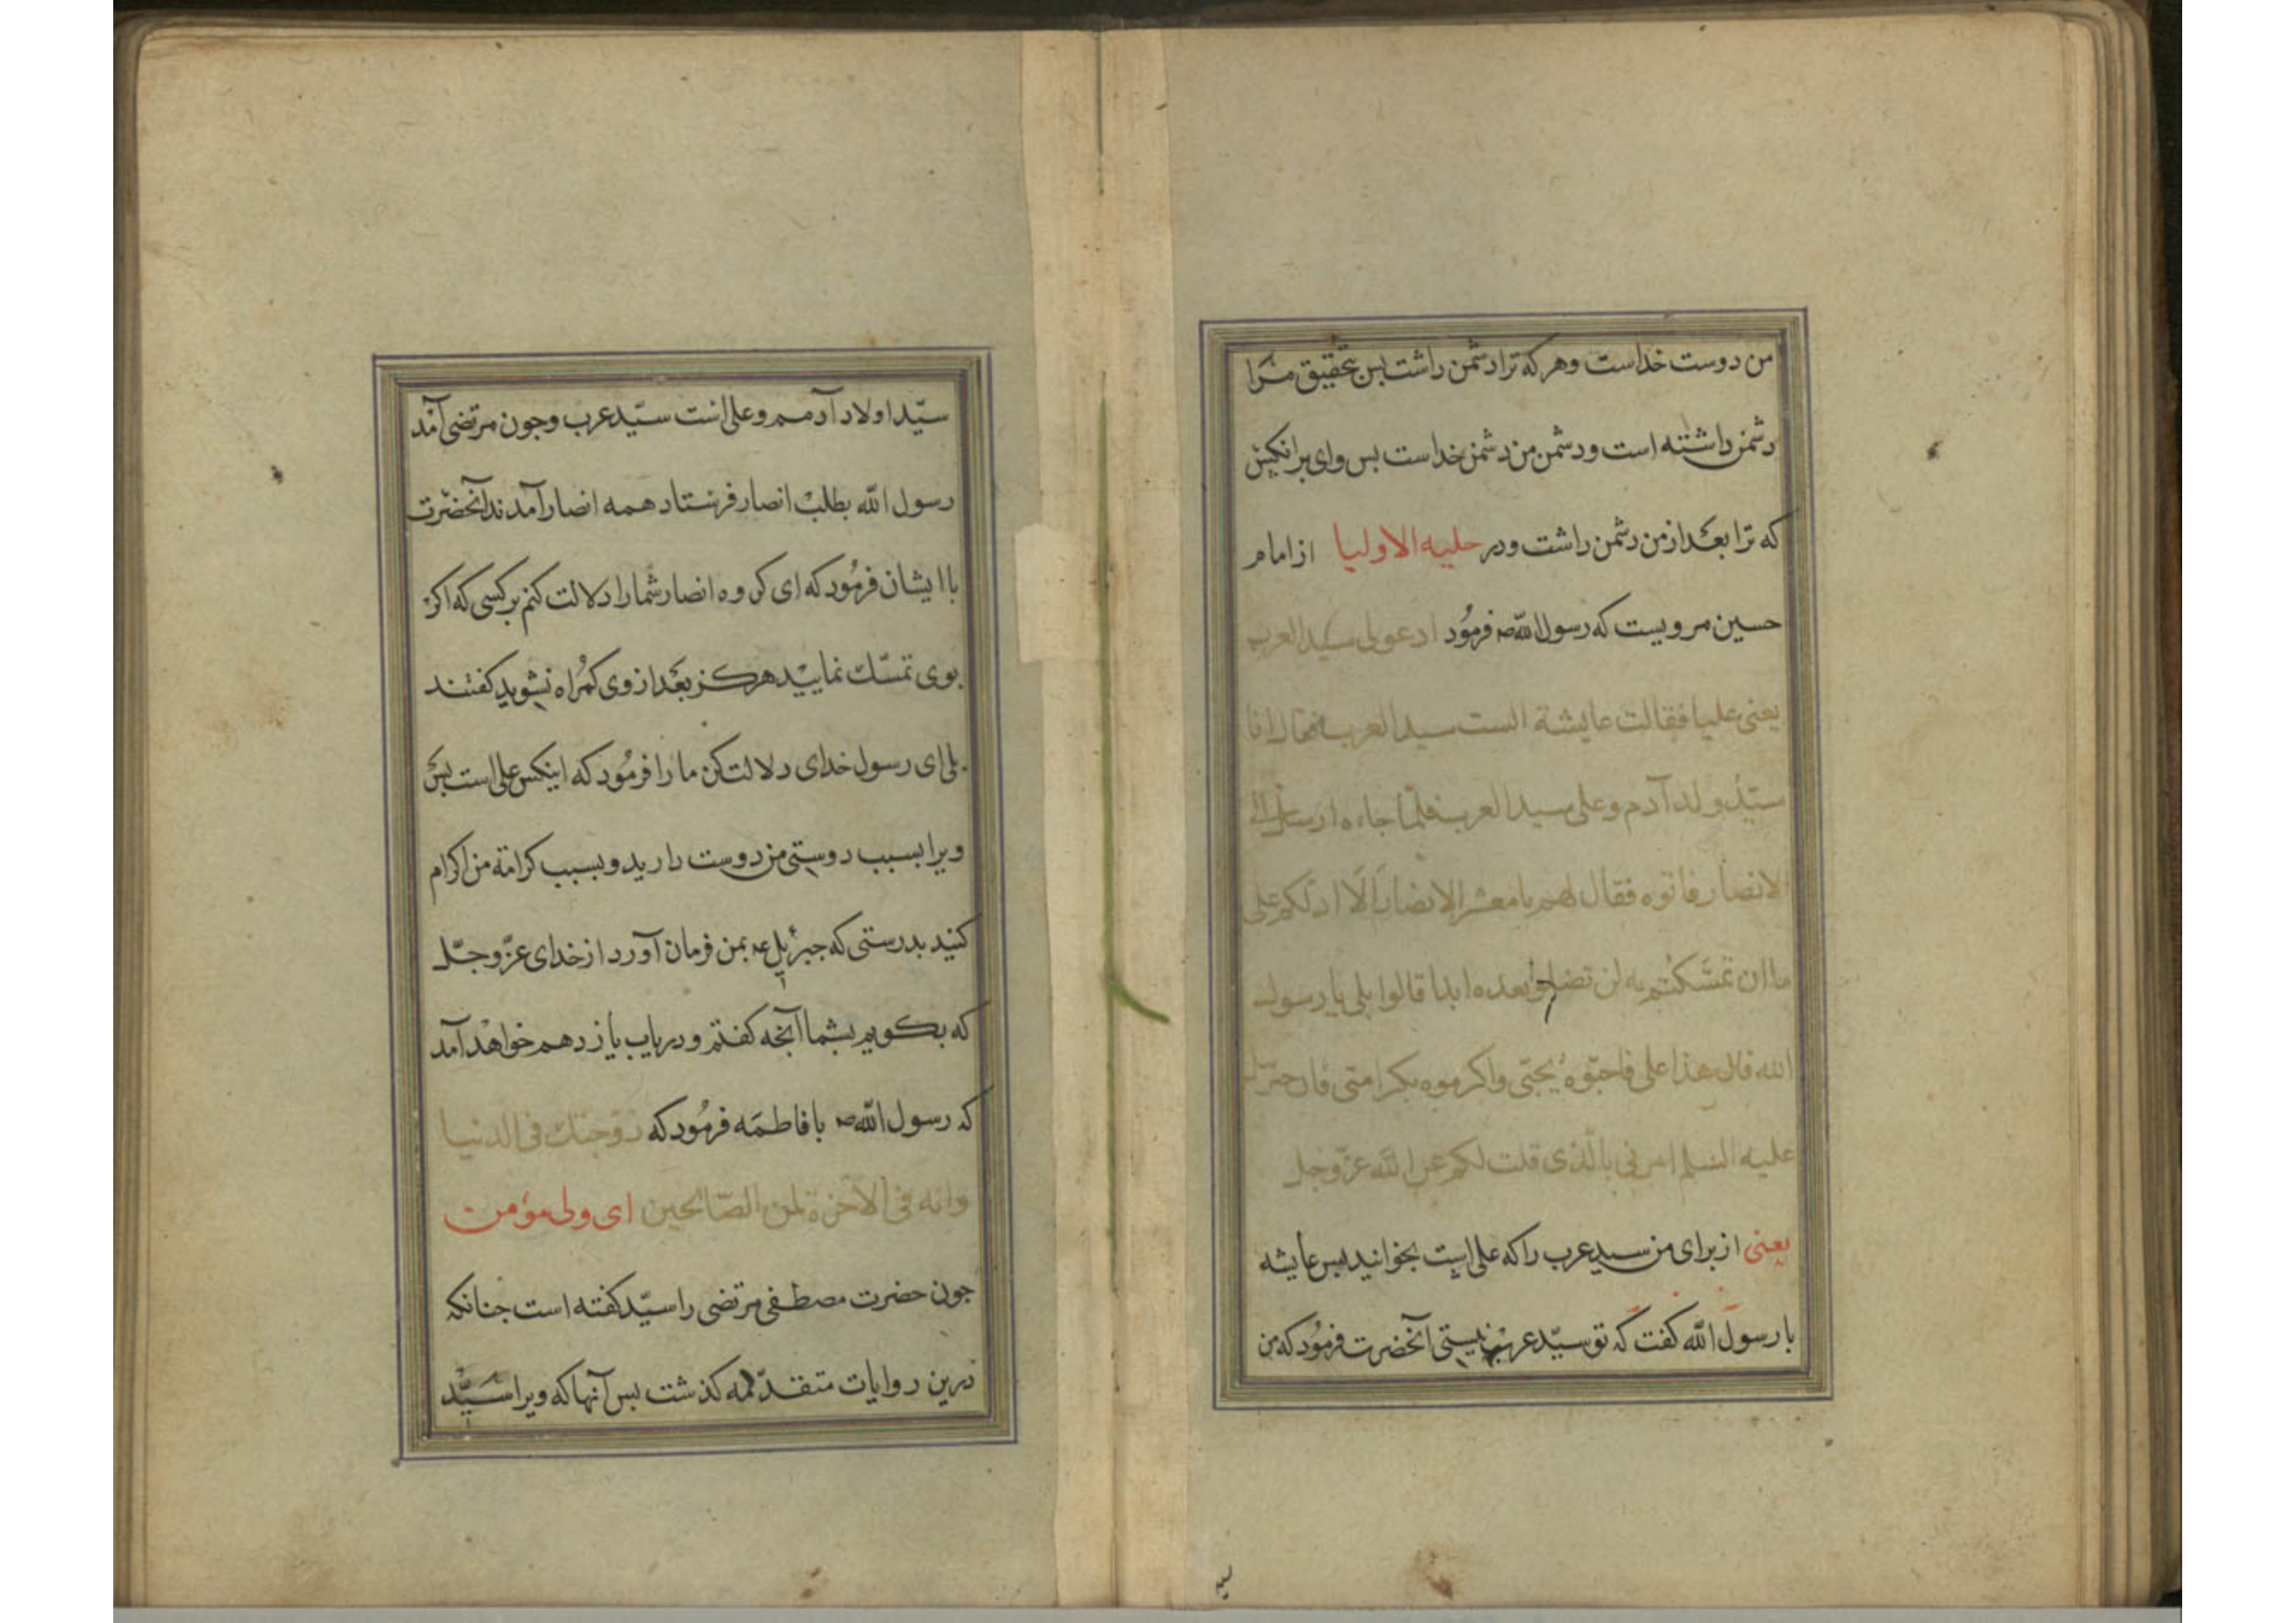 من دوست خداست وهر که ترا دشمن داشت بس بتحقیق مرا
دشمن داشته است ودشمن من دشمن خداست بس وای برانکس
که ترا بعد از من دشمن داشت ودر حلیه الاولیا از امام
حسین مرویست که رسول الله ص فرمُود ادعولی سید العرب
یعنی علیا فقالت عایشة الست سید العرب فقال انا
سیّدُ ولد آدم وعلی سید العرب فلمّا جاء ه ارسل الی
الانصار فاتوه فقال لهم یا معشر الانصار اَلَا ادلّکم علی
ما ان تمسّکتُم به لن تضلوا بعده ابدا قالوا بلی یا رسول
الله قال هذا علی فاحبّوه بحبّی واکرموه بکرامتی فان جبرئل
علیه السلم امرنی بالّذی قلت لکم عن الله عزّ وجل
یعنی از برای من سید عرب را که علی است بخوانید بس عایشه
با رسول الله کفت که تو سیّد عرب نیستی آنحضرت فرمُود که من
سیّد اولاد آدمم وعلی است سیّد عرب وجون مرتضی آمد
رسول الله بطلب انصار فرستاد همه انصار آمدند آنحضرت
با ایشان فرمُود که ای کروه انصار شما را دلالت کنم بر کسی که اکر
بوی تمسّک نمایید هرکز بعد از وی کمراه نشوید کفتند
بلی ای رسول خدای دلالت کن ما را فرمُود که اینکس علی است بس
ویرا بسبب دوستی من دوست دارید وبسبب کرامة من اکرام
کنید بدرستی که جبرئیل ع بمن فرمان آورد از خدای عزّ وجلّ
که بکویم بشما آنجه کفتم ودر باب یازدهم خواهد آمد
که رسول الله ص با فاطمَه فرمُود که زوّجتک فی الدنیا
وانه فی الاخرة لمن الصّالحین ای ولی مؤمن
جون حضرت مصطفی مرتضی را سیّد کفته است جنانکه
درین روایات متقدّمه کذشت بس آنها که ویرا سیّد